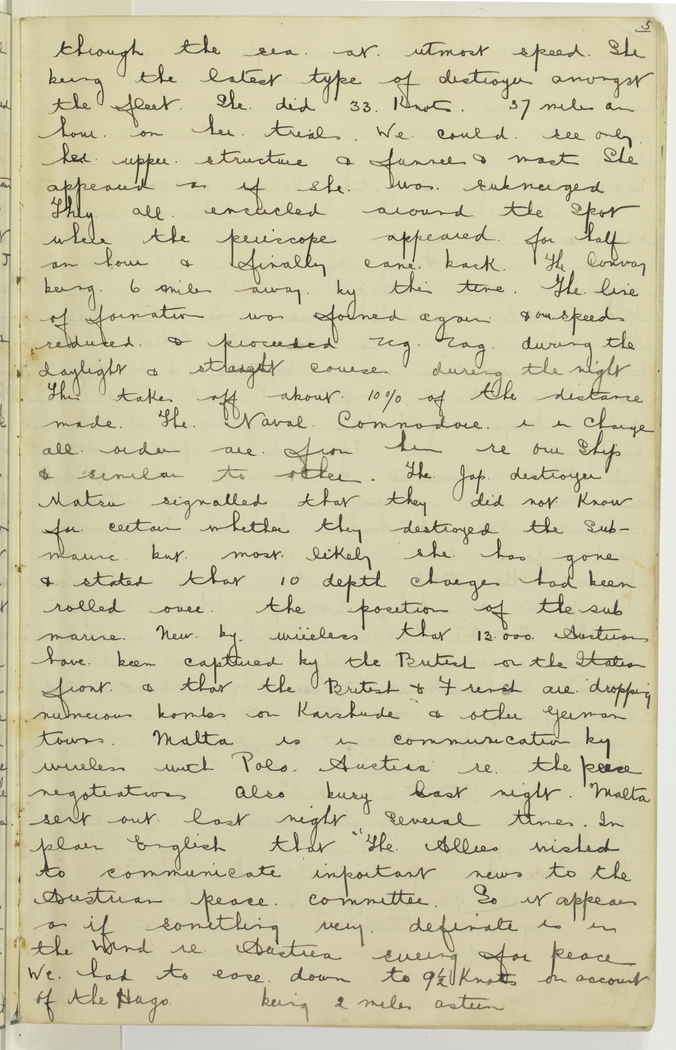 5
through the sea at utmost speed. She
being the latest type of destroyer amongst
the fleet. She did 33. Knots. 37 miles an
hour. on her trials. We could. see only.
her upper. structure & funnels & mast She
appeared as if she. was. submerged
They all. encircled around the spot
where the periscope appeared. for half
an hour & finally came back. The Convoy
being. 6 miles away. by this time. The line
of formation was formed again & our speed
reduced. & proceeded zig. zag. during the
daylight & straight course during the night
This takes off about. 10% of the distance
made. The. Naval Commodore. is in charge
all. orders are. from him re our Ship
& similar to other. The Jap. destroyer
Matsu signalled that they did not Know
for certain whether they destroyed the Sub-
marine but. most. likely she. has gone
& stated that 10 depth charges had been
rolled over. the position of the sub
marine. News. by. wireless that 13.000. Austrians
have. been captured by the British on the Italian
front. & that the British & French are. dropping
numerous bombs on Karshude & other German
towns. Malta is in communication by
wireless with Polo. Austria re. the peace
negotiations Also busy last night. Malta
sent out last night several times. In
plain English that "The. Allies wished
to communicate important news to the
Austrian peace. committee. So it appears
as if something very. definate is in
the Wind re Austria sueing for peace
We. had to ease. down to 9½ Knots on account
of the Hugo being 2 miles astern